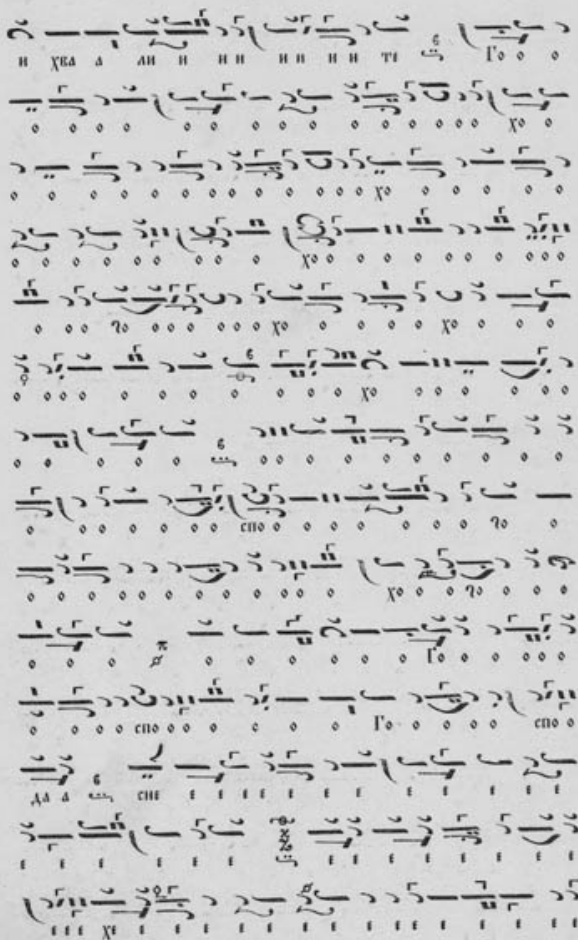 и хва а ли и и и и и и и те Го о о
о о о о о о о о о о о о о о о хо о
о о о о о о о о о о о о о о хо о о о о о
о о о о о о о о о о о хо о о о о о о о о о о
о о о ло о о о о о о о хо о о о о хо о о о
о о о о о о о о о о о хо о о о о о о
о о о о о о о о о о о о о о о
о о о о о о о о спо о о о о о о о ло о
о о о о о о о о о о о о хо о о ло о о о
о о о о о о о о о Го о о о о о
о о о о о спо о о о о о Го о о о о спо о
да а сне е е е е е е е е е е е е
е е е е е е е е е е е е е е
е е е хе е е е е е е е е е е е